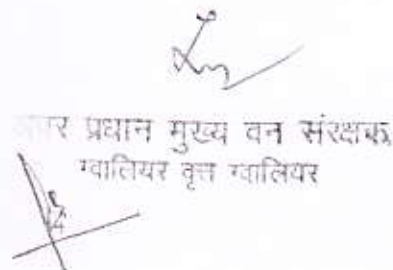 अपर प्रधान मुख्य वन संरक्षक
ग्वालियर वृत्त ग्वालियर